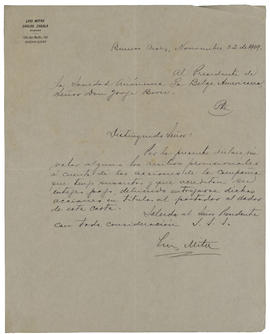 LUIS MITRE
CARLOS ZABALA
BUENOS AIRES
Buenos Aires, Noviembre 22 de 1909.
Al Presidente de
la Sociedad Anónima La Belga Americana,
Señor Don Jorge Born.
Distinguido Señor:
Por la presente declaro sin
valor alguno los recibos provisionales
á cuenta de las acciones de la Compañía
que tengo suscritas y que acreditan su
íntegro pago debiendo entregarse dichas
acciones ó títulos al portador al dador
de esta carta.
Saluda al Señor Presidente
con toda consideracion S. S. S.
Luis Mitre